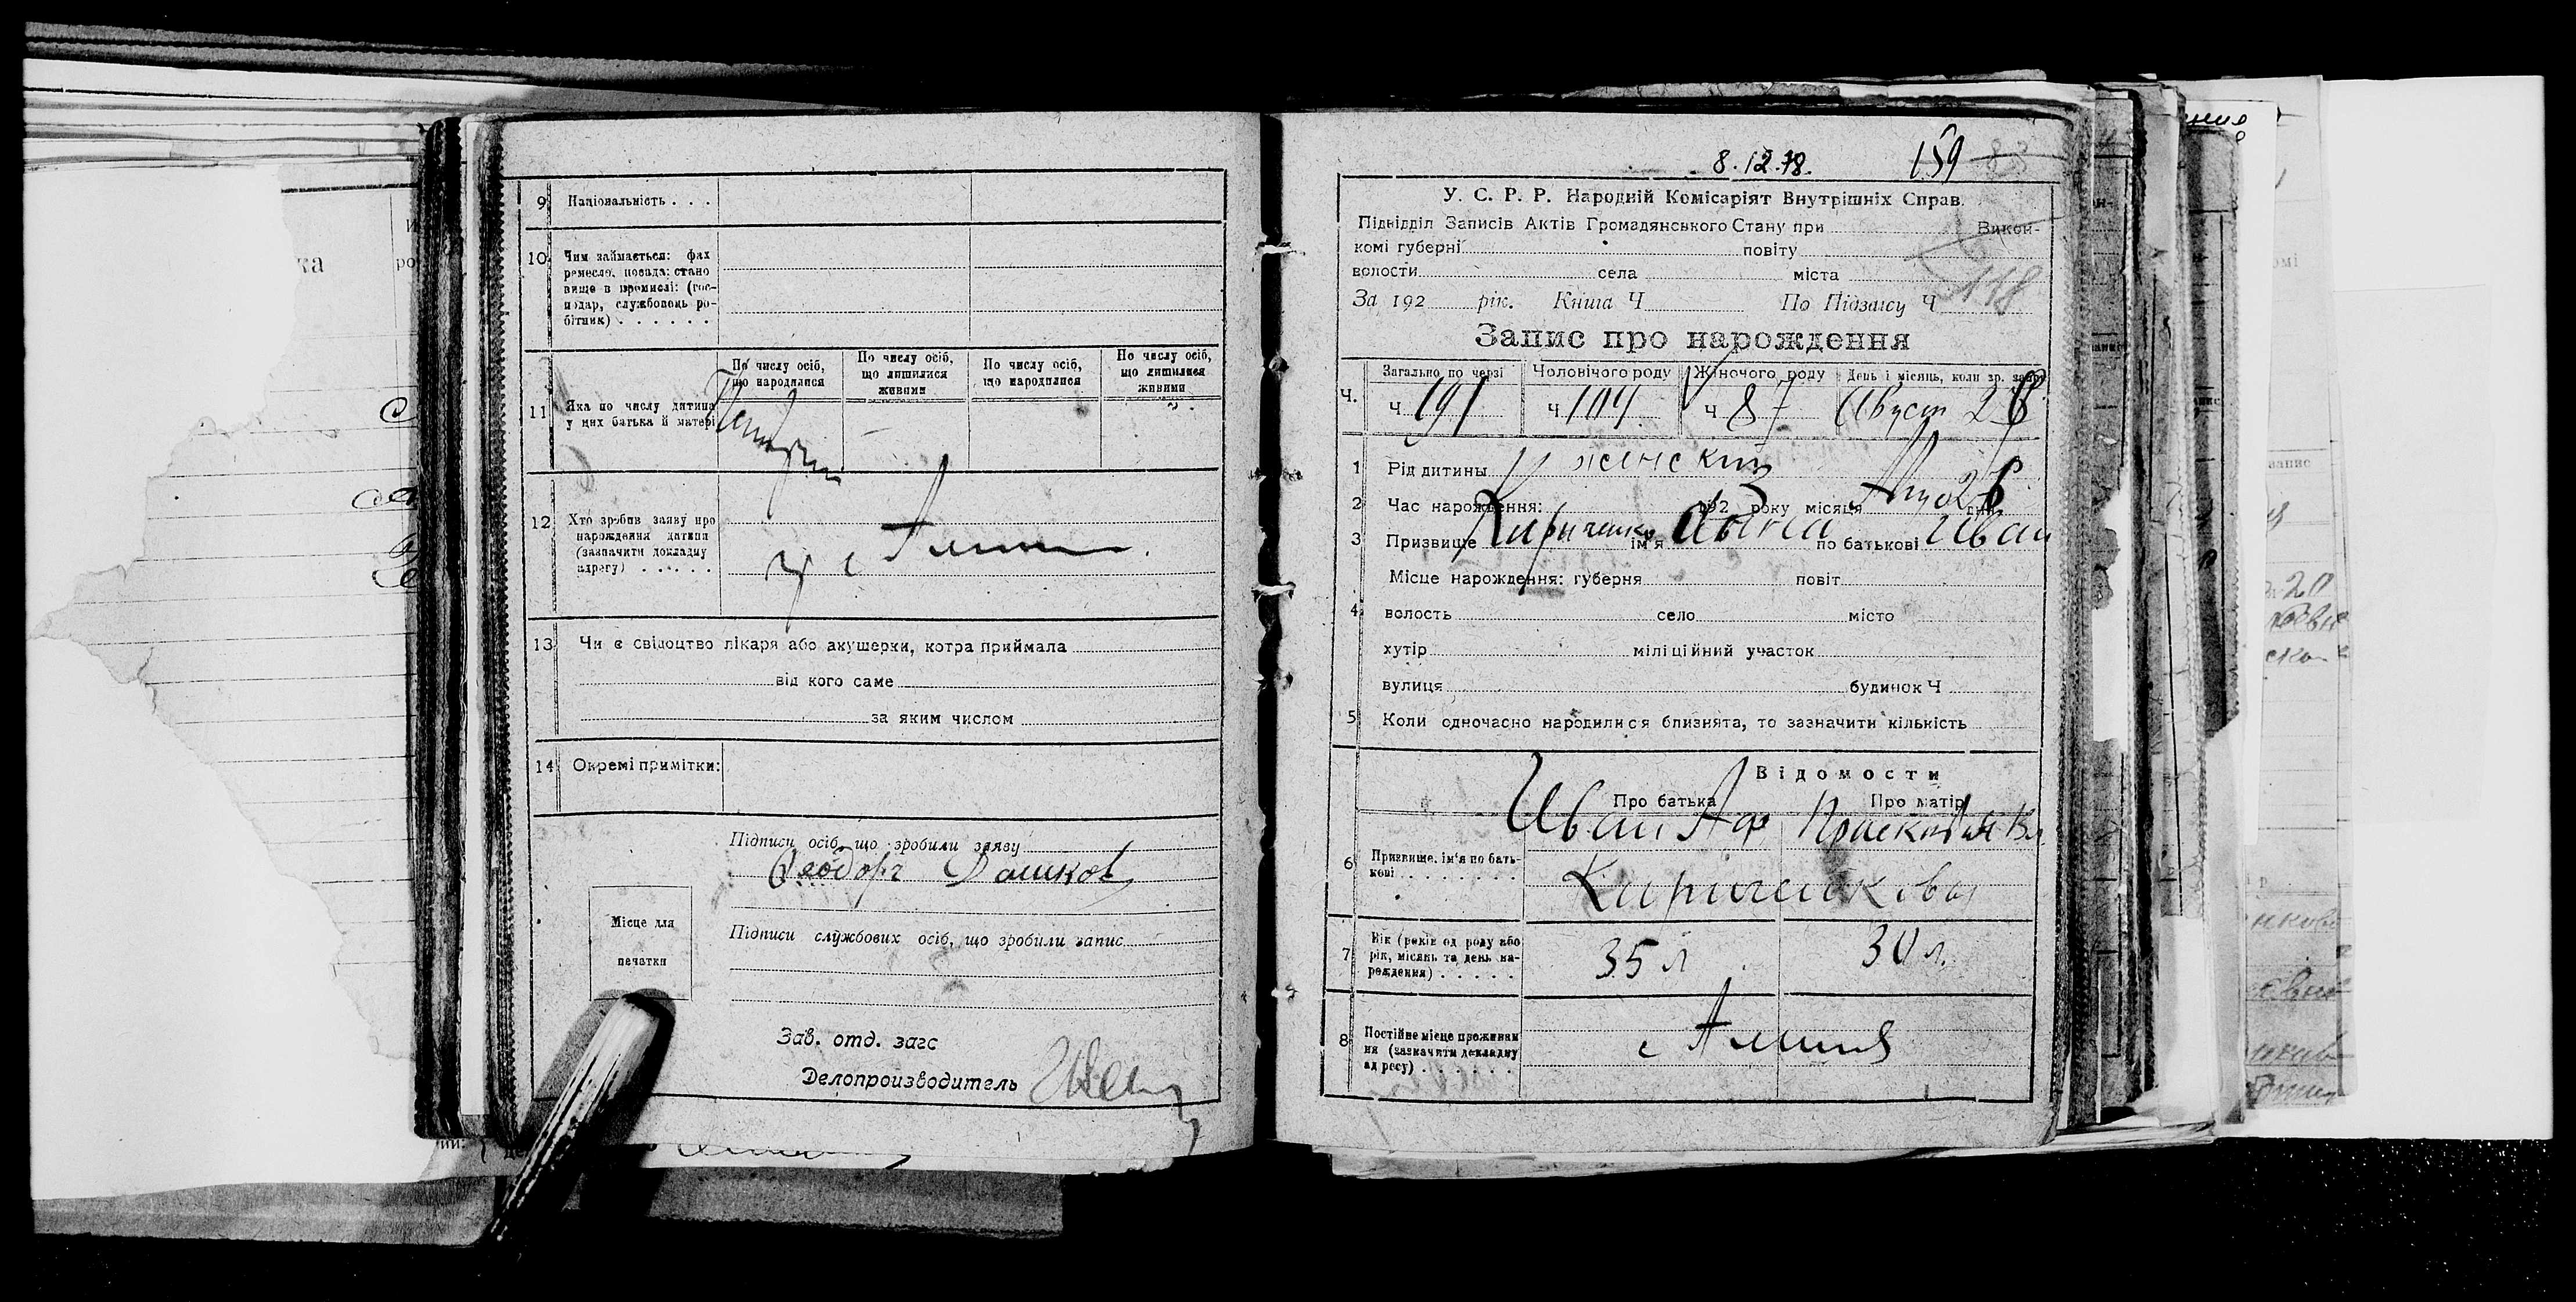 9 Національність . . .
10 Чим займається: фах
ремесло, посада: стано
вище в промислі: (гос-
подар, службовець ро-
бітник) . . . . . .
По числу осіб,
що народилися
По числу осіб,
що лишилися
живими
По числу осіб,
що народилися
По числу осіб,
що лишилися
живими
11 Яка по числу дитина
у цих батька й матері
12 Хто зробив заяву про
нарождення дитини
(зазначити докладну
адресу) . . . . .
13 Чи є свідоцтво лікаря або акушерки, котра приймала
від кого саме
за яким числом
14 Окремі примітки:
Підписи осіб, що зробили заяву
Феодоръ Дашков
Місце для
печатки
Підписи службових осіб, що зробили запис
Зав. отд. загс
Делопроизводитель
8.12.78. 159
У. С. Р. Р. Народній Комісаріят Внутрішніх Справ.
Підвідділ Записів Актів Громадянського Стану при Викон-
комі губерні повіту
волости села міста
За 192 рік. Книга Ч По Підзагсу Ч 118
Запис про нарождення
Загально по черзі Чоловічого роду Жіночого роду День і місяць, коли зр. запис
Ч. Ч 191 Ч 104 Ч 87 Август 28
1 Рід дитины женский
2 Час нарождення: 1923 року місяця дня
3 Призвище Кириченко ім'я по батькові Иван
Місце нарождення: губерня повіт
4 волость село місто
хутір міліційний участок
вулиця будинок Ч
5 Коли одночасно народилися близнята, то зазначити кількість
Відомости
Про батька Про матір
Иван Аф Прасковья Вл
6 Призвище, ім'я по бать-
кові . . . . . . .
Кириченкова
7 Вік (років од роду або
рік, місяць та день на-
рождення) . . . . .
35 л 30 л.
8 Постійне місце проживан
ня (зазначити докладну
адресу) . . . . . .